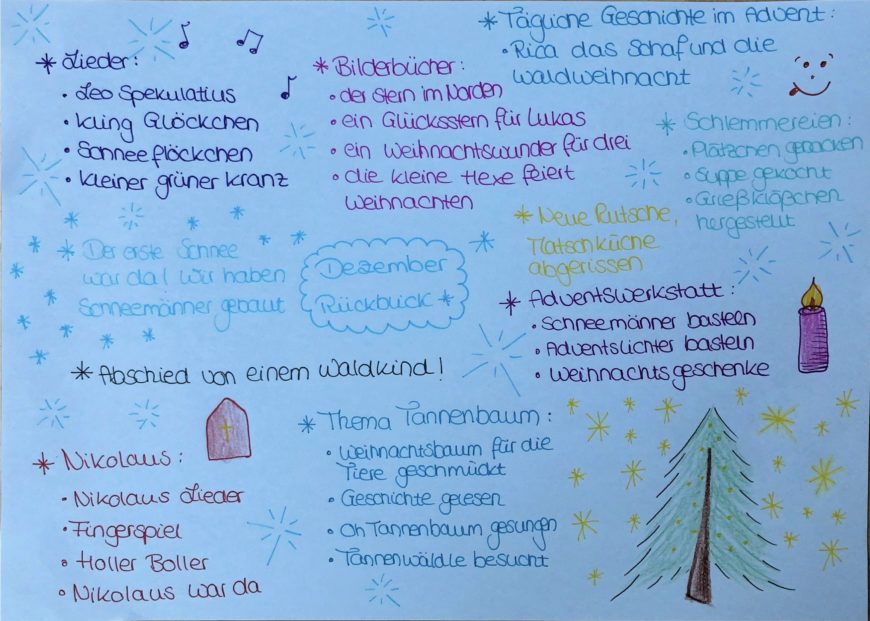 * Lieder:
• Leo Spekulatius
• Kling Glöckchen
• Schneeflöckchen
• kleiner grüner Kranz
* Bilderbücher:
• der Stern im Norden
• ein Glücksstern für Lukas
• ein Weihnachtswunder für drei
• die kleine Hexe feiert
Weihnachten
* Tägliche Geschichte im Advent:
• Rica das Schaf und die
Waldweihnacht
* Schlemmereien:
• Plätzchen gebacken
• Suppe gekocht
• Grießklöpchen
hergestellt
* Der erste Schnee
war da! Wir haben
Schneemänner gebaut
Dezember
Rückblick *
* Neue Rutsche,
Matschküche
abgerissen
* Adventswerkstatt:
• Schneemänner basteln
• Adventslichter basteln
• Weihnachtsgeschenke
* Abschied von einem Waldkind!
* Nikolaus:
• Nikolaus Lieder
• Fingerspiel
• Holler Boller
• Nikolaus war da
* Thema Tannenbaum:
• Weihnachtsbaum für die
Tiere geschmückt
• Geschichte gelesen
• Oh Tannenbaum gesungen
• Tannenwäldle besucht